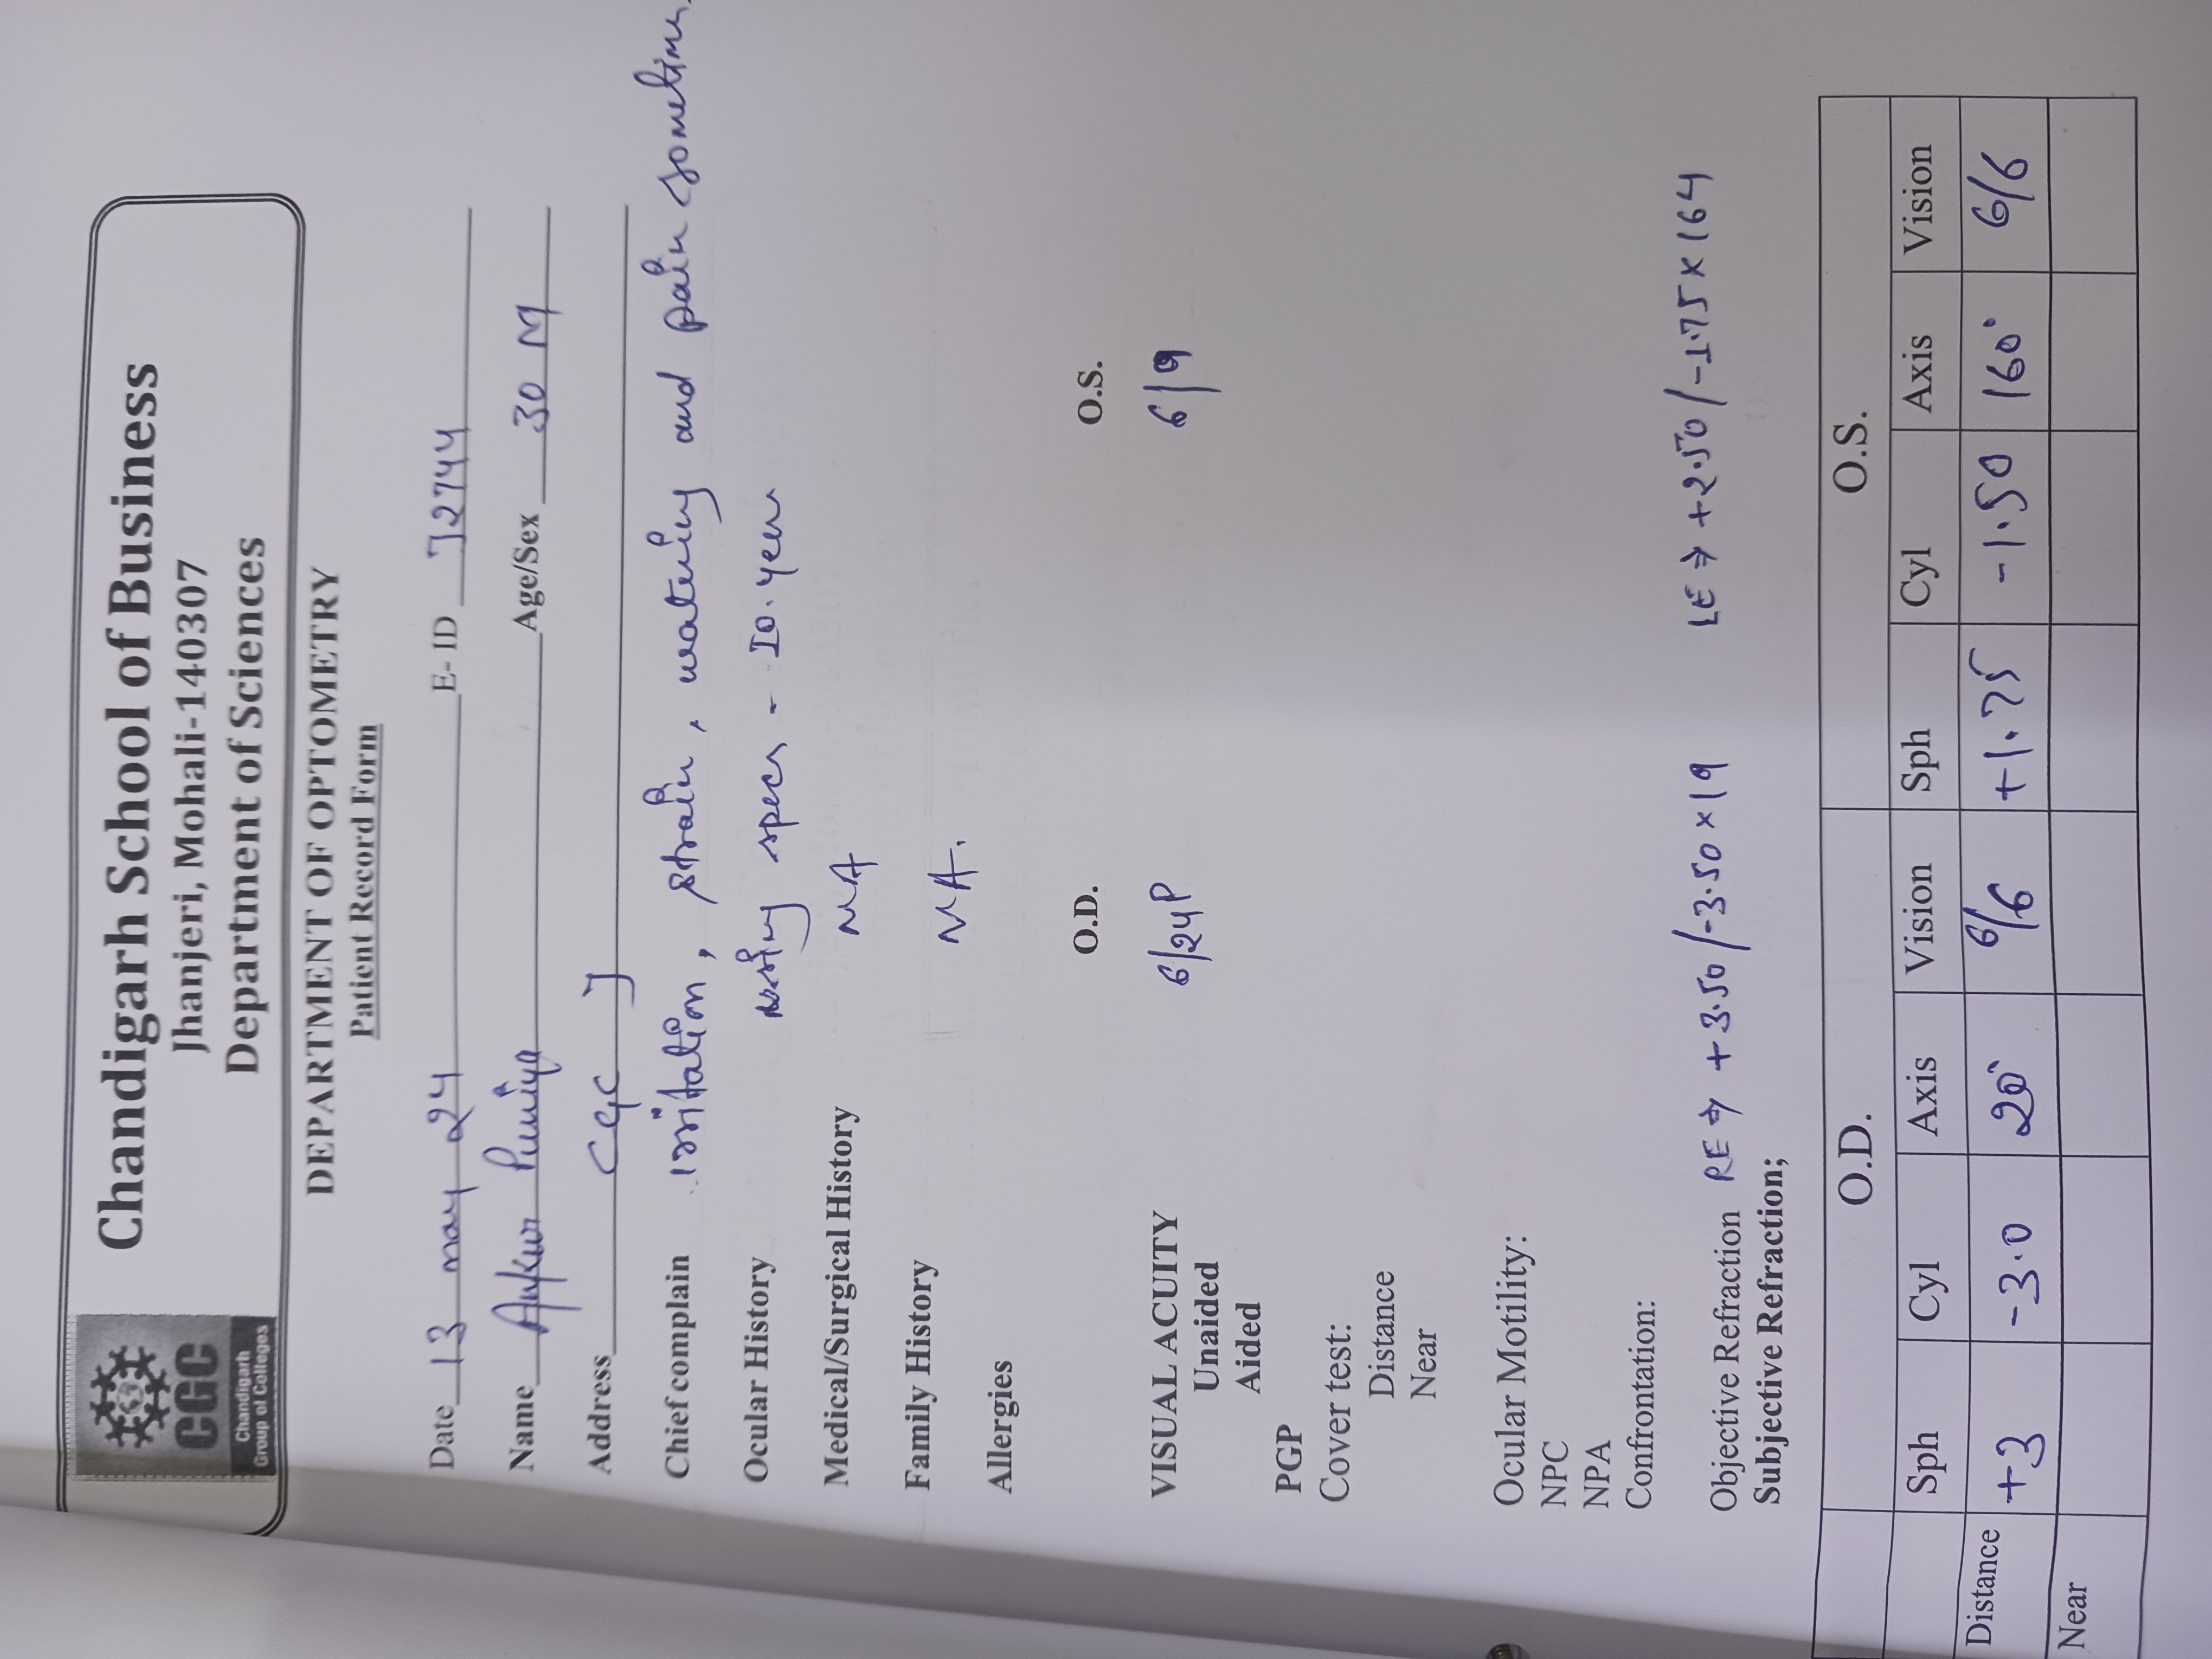 CGC
Chandigarh
Group of Colleges
Chandigarh School of Business
Jhanjeri, Mohali-140307
Department of Sciences
DEPARTMENT OF OPTOMETRY
Patient Record Form
Date 13 may 24 E- ID J2744
Name Ankur Puniya Age/Sex 30 M
Address CGC J
Chief complain irritation, strain, watering and pain sometimes
Ocular History using specs - 10.year
Medical/Surgical History NA
Family History NA.
Allergies
O.D. O.S.
VISUAL ACUITY 6/24P 6/9
Unaided
Aided
PGP
Cover test:
Distance
Near
Ocular Motility:
NPC
NPA
Confrontation:
Objective Refraction RE ⇒ +3.50/-3.50×19 LE ⇒ +2.50/-1.75×164
Subjective Refraction;
O.D. O.S.
Sph Cyl Axis Vision Sph Cyl Axis Vision
Distance +3 -3.0 20° 6/6 +1.75 -1.50 160° 6/6
Near